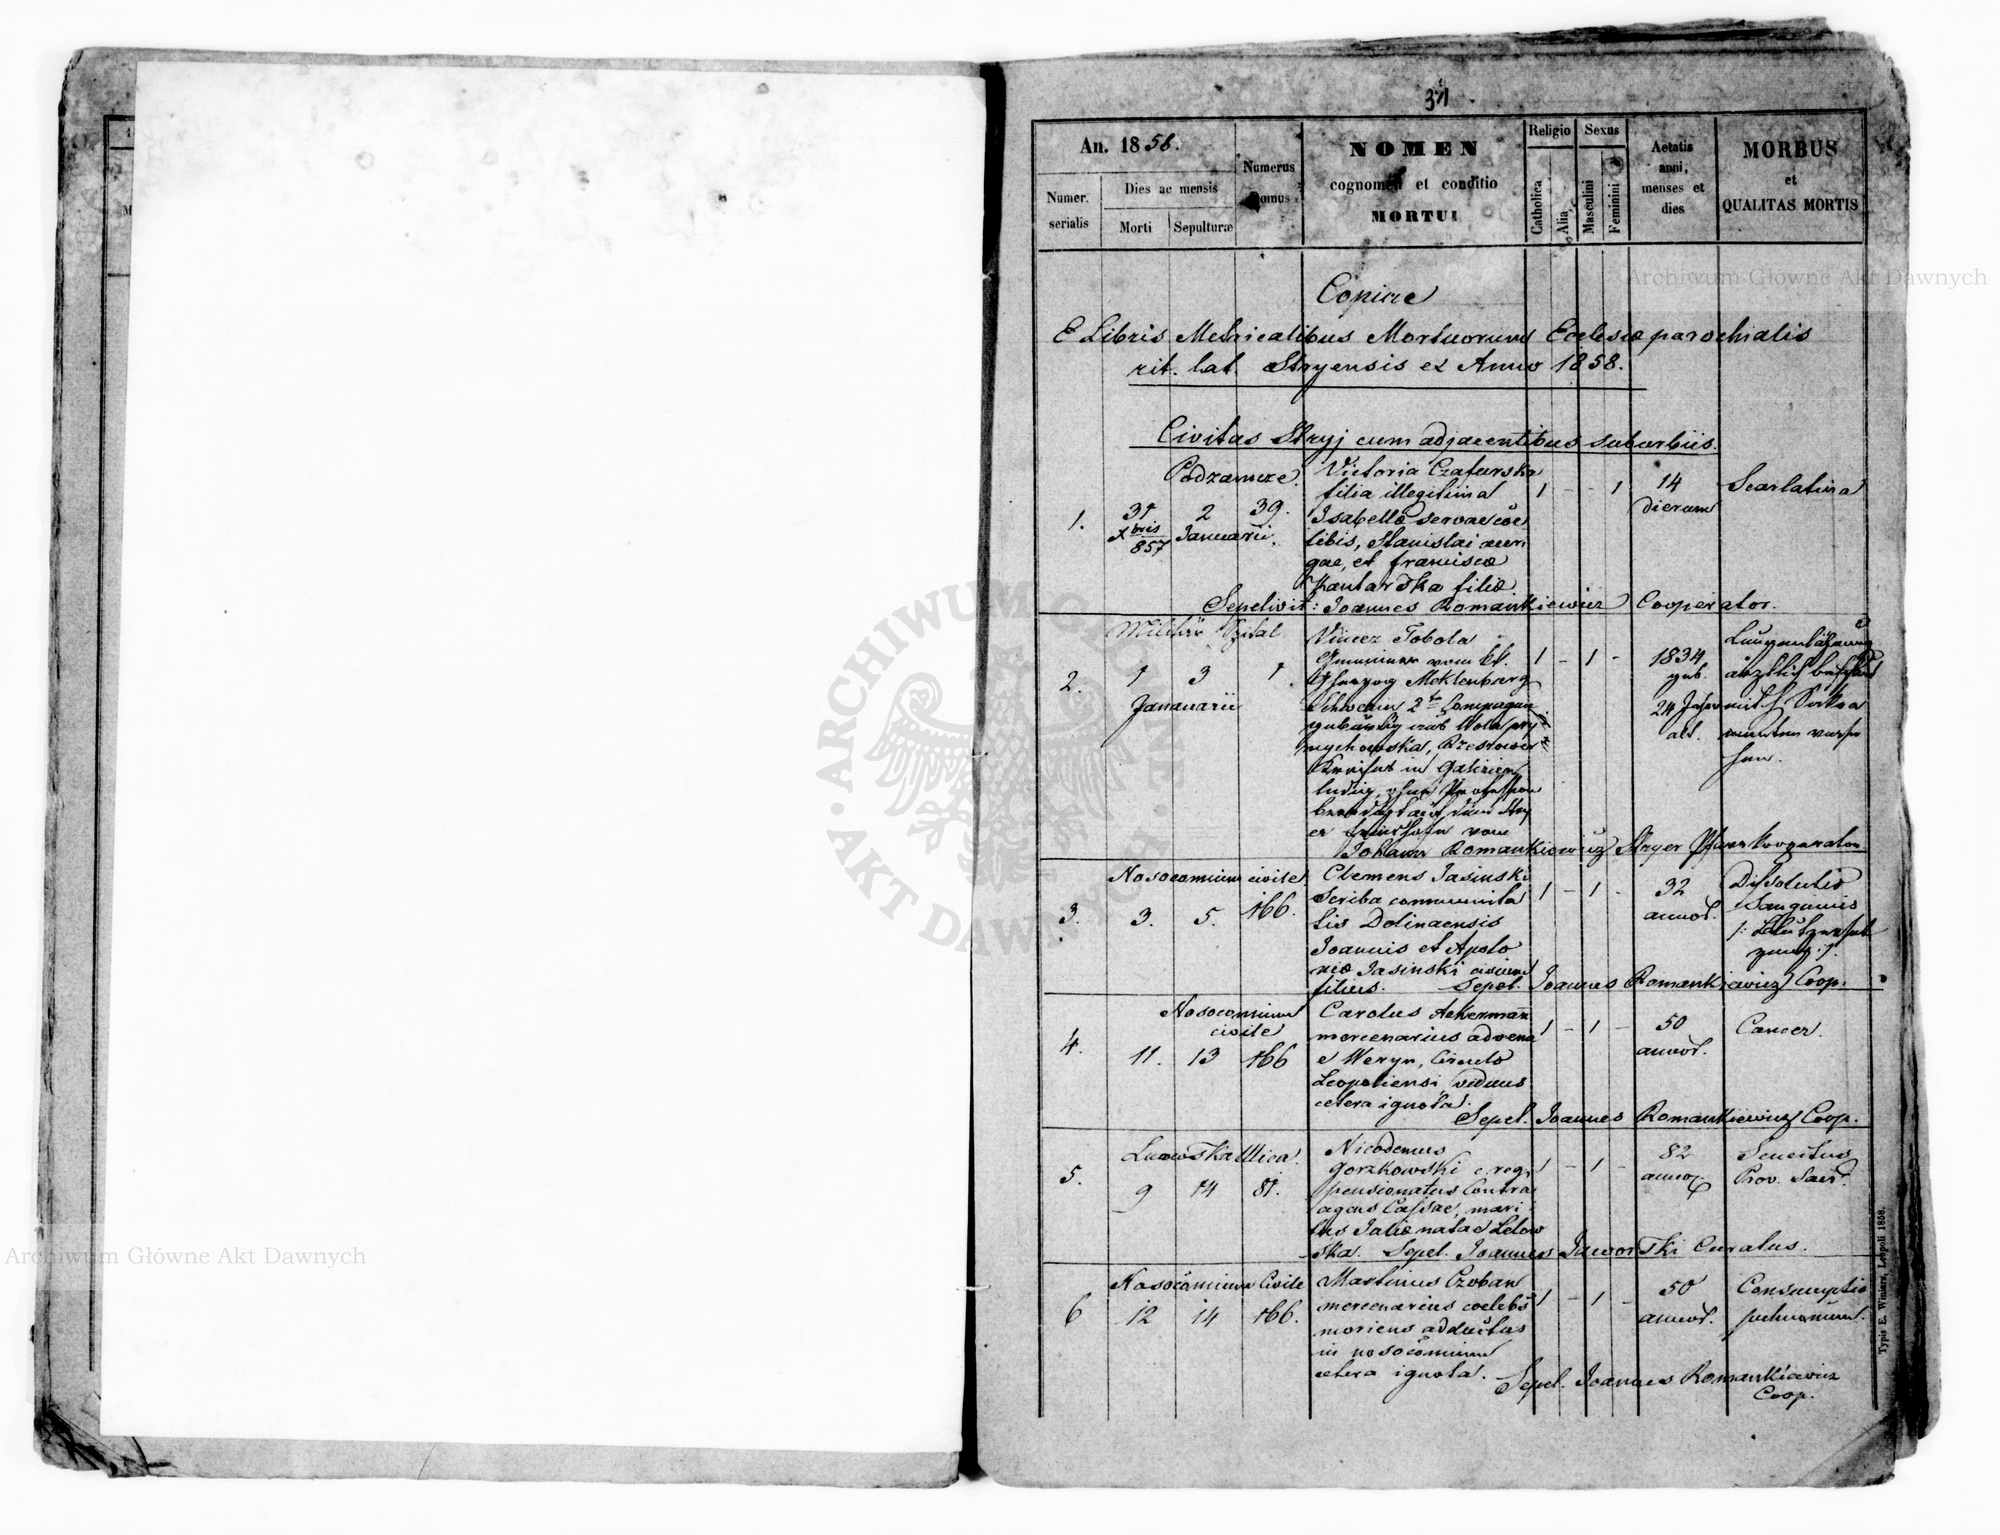 31
An. 1858.
Numer. serialis
Dies ac mensis
Morti
Sepulturæ
Numerus Domus
NOMEN
cognomen et conditio
MORTUI
Religio
Catholica
Alia
Sexus
Masculini
Feminini
Aetatis
anni,
menses et
dies
MORBUS
et
QUALITAS MORTIS
Copiae
E Libris Metricalibus Mortuorum Eclesiæ parochialis
rit. lat. Stryensis ex Anno 1858.
Civitas Stryj cum adjacentibus suburbiis.
Podzamcze.
1. 31 Xbris 857 2 Januarii. 39.
Victoria Czafurska
filia illegitima
Isabellæ servae cœ
libis, Stanislai auri
gae, et franciscæ
Kantarska filiæ.
1 - - 1 14 dierum Scarlatina
Sepelivit: Joannes Romankiewicz Cooperator.
Militär Spital
2. 1 3 1. Januarii
Vincez Tobola
Gemeiner vom
Meklenburg
Schwerin 2te Compagnie
Rzeszower
Kreises in Galizien
ledig, ohne Profession
er Friedhofe vom
1 - 1 - 1834 geb. 24 Jahr alt.
Johann Romankiewicz Stryer Pfarrkooperator
Nosocomium civile.
3. 3. 5. 166.
Clemens Jasinski
Scriba communita
tis Dolinaensis
Joannis et Apolo
niæ Jasinski civium
filius.
1 - 1 - 32 annor.
Dissolutio
Sanguinis
Sepel. Joannes Romankiewicz Coop.
Nosocomium
civile
4. 11. 13 166
Carolus Ackerman
mercenarius advena
e Weryn, Circulo
Leopoliensi, viduus
cetera ignota.
1 - 1 - 50 annor. Cancer.
Sepel. Joannes Romankiewicz Coop.
Lwowska Ulica.
5. 9 14 81.
Nicodemus
Gorzkowski c. reg.
pensionatus Contra
agens Cassae, mari
tus Juliæ natae Letow
ska. Sepel. Joannes Jaworski Curatus.
1 - 1 - 82 annor.
Senectus
Prov. Sacr.
Nosocomium Civile
6 12 14 166.
Martinus Czoban
mercenarius coelebs
moriens adductus
in nosocomium
cetera ignota.
1 - 1 - 50 annor.
Consumptio
pulmonum.
Sepel. Joannes Romankiewicz
Coop.
Typis E. Winiarz, Leopoli 1858.
Archiwum Główne Akt Dawnych
Archiwum Główne Akt Dawnych
ARCHIWUM GŁÓWNE AKT DAWNYCH